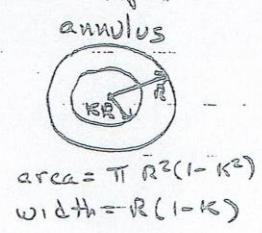 annulus
R
KR
area = π R²(1-K²)
width = R(1-K)